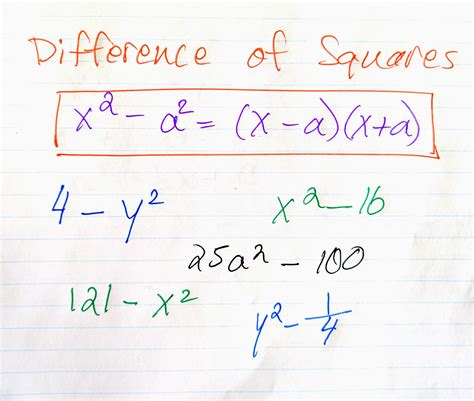 Difference of Squares
x² - a² = (x-a)(x+a)
4 - y²
x² - 16
25a² - 100
121 - x²
y² - 1/4